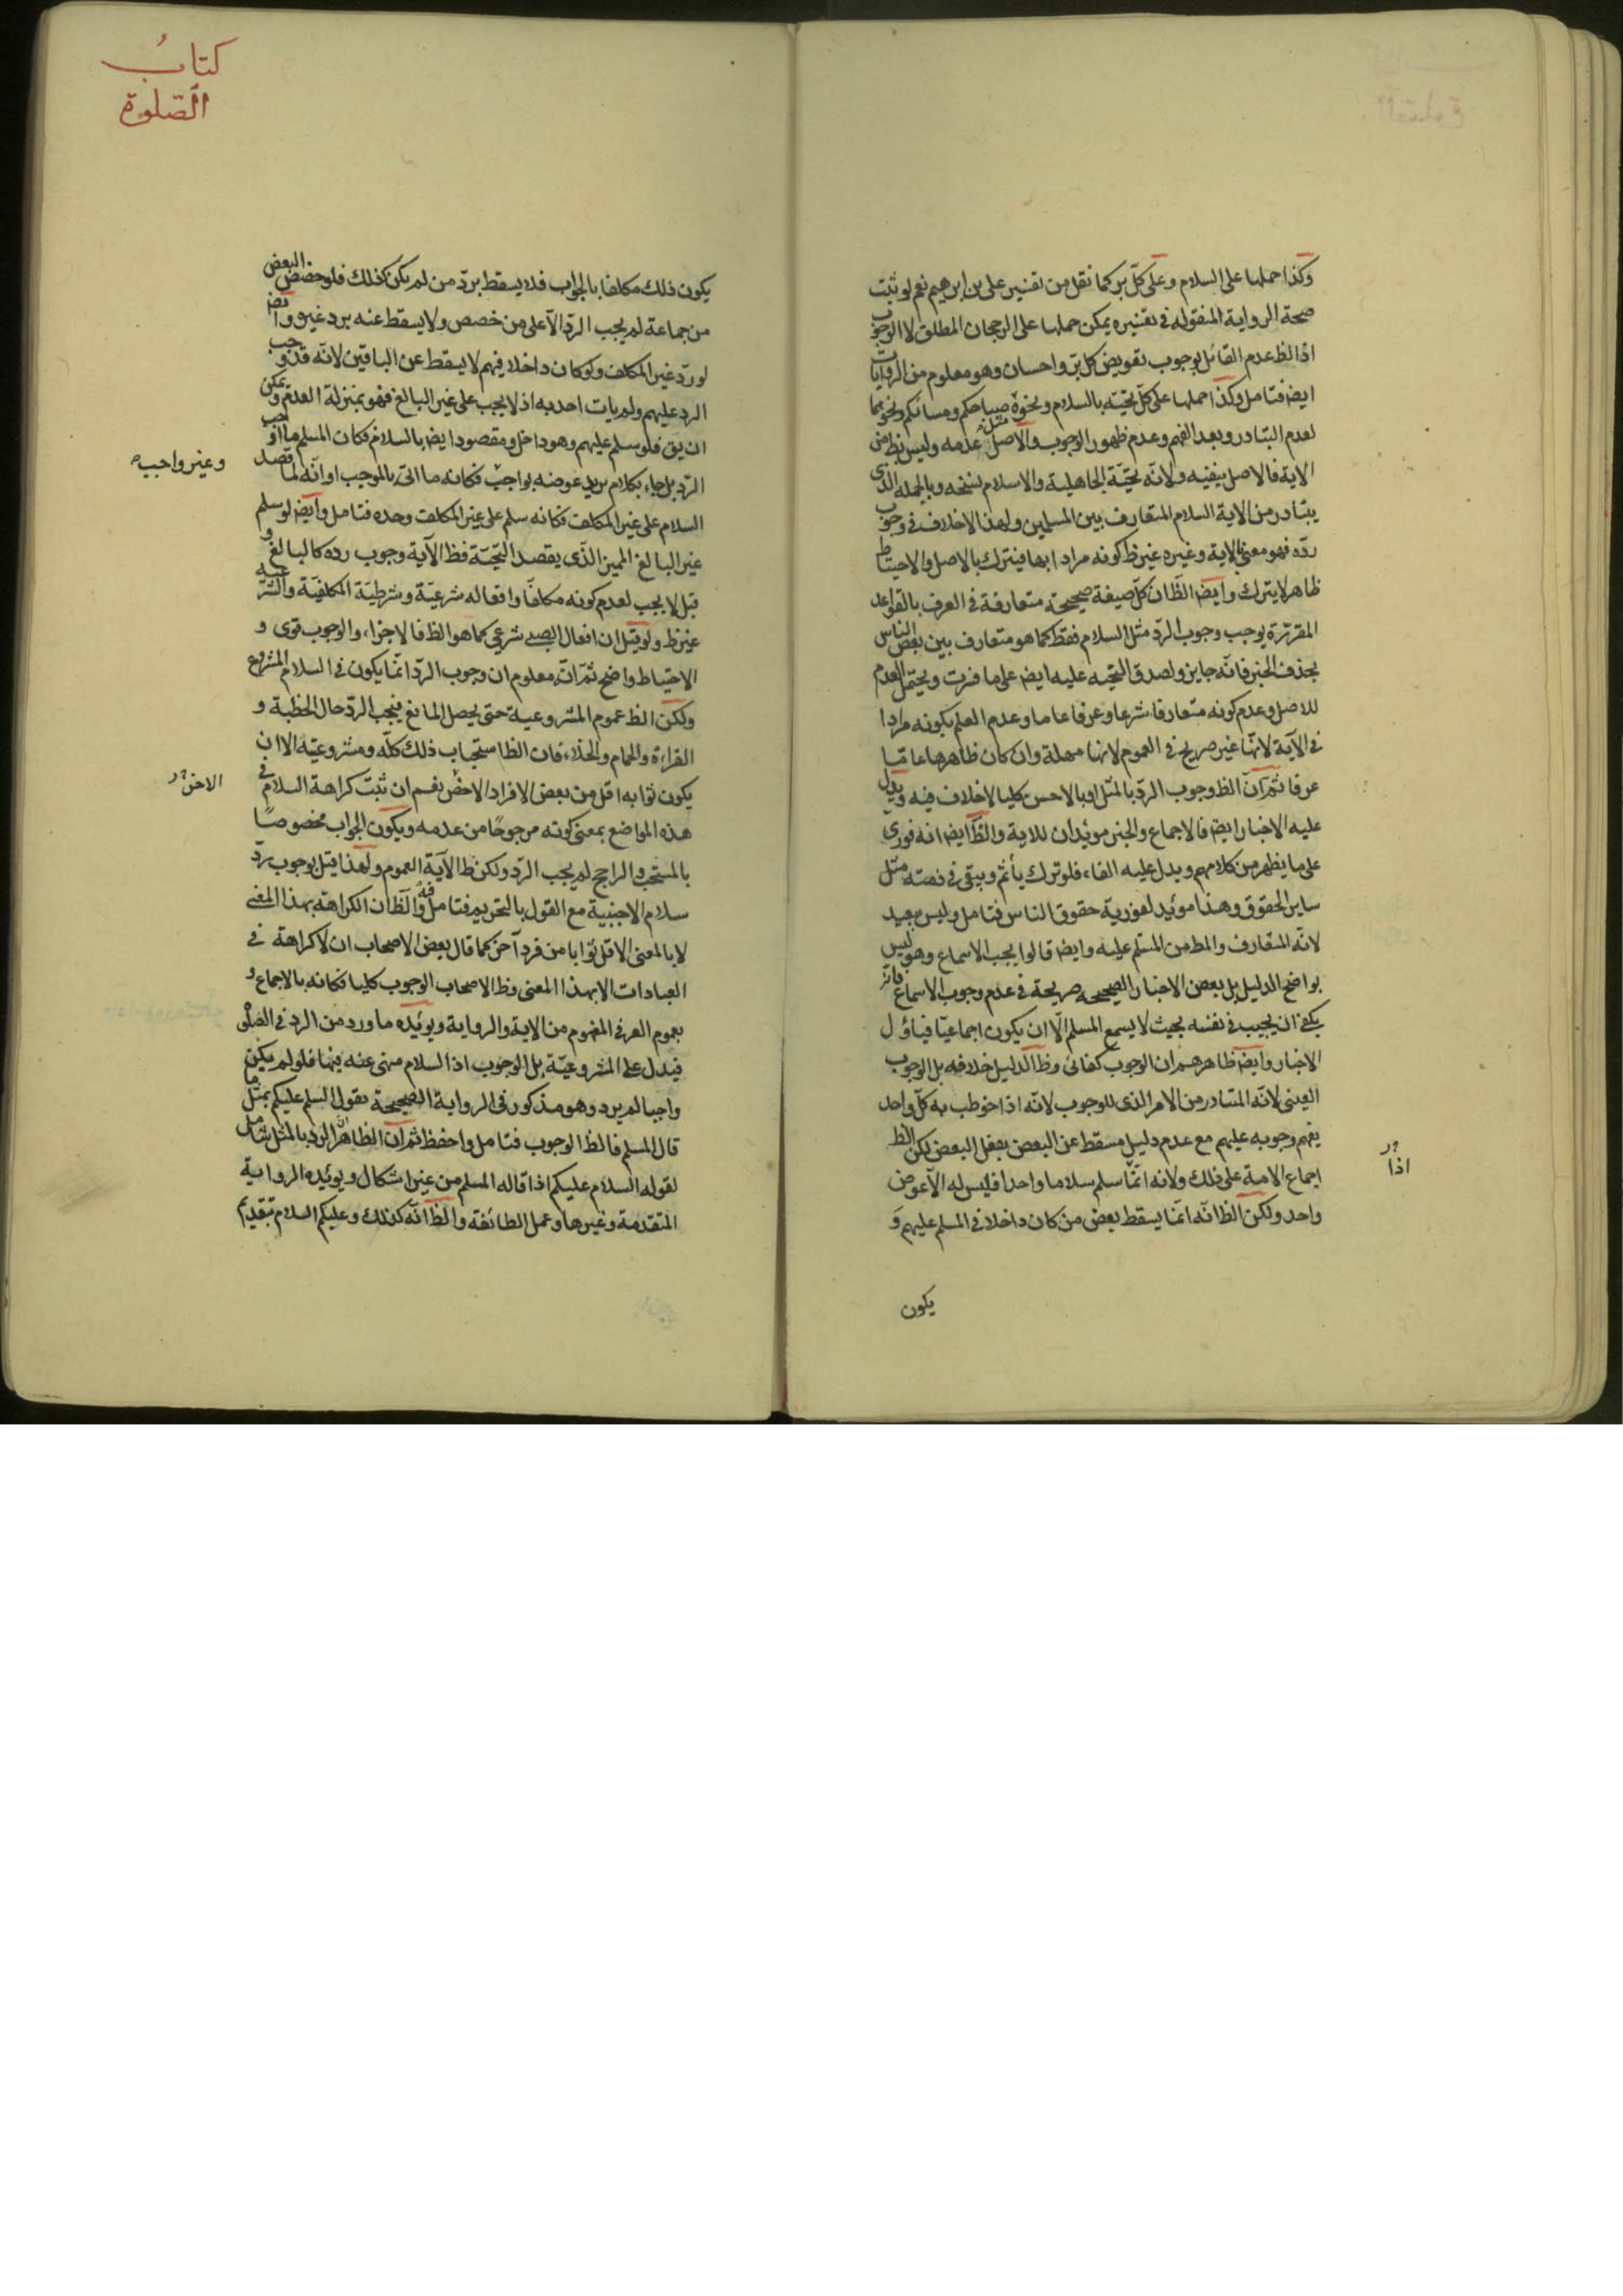 وكذا حملها على السلام وعلى كل بر كما نقل من تفسير على بن ابرهيم نعم لو ثبت
صحة الرواية المنقوله فى تفسيره يمكن حملها على الرجحان المطلق لا الوجوب
اذ الظ عدم القائل بوجوب تعويض كل بر واحسان وهو معلوم من الروايات
ايض فتامل وكذا حملها على كل تحيته بالسلام ونحوه مثل صباحكم ومسائكم ونحوهما
لعدم التبادر وبعد الفهم وعدم ظهور الوجوب والاصل عدمه وليس نظ من
الاية فالاصل ينفيه ولانه تحيّة الجاهلية والاسلام نسخه وبالجمله الذى
يتبادر من الاية السلام المتعارف بين المسلمين ولهذا لاخلاف فى وجوب
رده فهو معنى بالاية وغيره غير ظ كونه مرادا بها فيترك بالاصل والاحتياط
ظاهر لا يترك وايض الظان كل صيغة صحيحة متعارفة فى العرف بالقواعد
المقررة يوجب وجوب الرد مثل السلام فقط كما هو متعارف بين بعض الناس
بحذف الخبر فانه جايز ولصدق التحيه عليه ايض على ما فسرت ويحتمل العدم
للاصل وعدم كونه متعارفا شرعا وعرفا عاما وعدم العلم بكونه مرادا
فى الآية لانها غير صريح فى العموم لانها مهملة وان كان ظاهرها عامّا
عرفا ثم ان الظ وجوب الرد بالمثل او بالاحسن كليا لاخلاف فيه ويدل
عليه الاخبار ايض فالاجماع والخبر مويدان للاية والظ ايض انه فورى
على ما يظهر من كلامهم ويدل عليه الفاء فلو ترك ياثم ويبقى فى ذمته مثل
ساير الحقوق وهذا مويد لفورية حقوق الناس فتامل وليس ببعيد
لانه المتعارف والمط من المسلم عليه وايض قالوا يجب الاسماع وهو ليس
بواضح الدليل بل بعض الاخبار الصحيحه صريحة فى عدم وجوب الاسماع وانه
يكفى ان يجيب فى نفسه بحيث لا يسمع المسلم الا ان يكون اجماعيّا فياؤل
الاخبار وايض ظاهرهم ان الوجوب كفائى وظ الدليل خلافه بل الوجوب
العينى لانه المتبادر من الامر الذى للوجوب لانه اذا خوطب به كل واحد
يفهم وجوبه عليهم مع عدم دليل مسقط عن البعض بفعل البعض لكن الظ
اجماع الامة على ذلك ولانه انما سلم سلاما واحدا فليس له الا عوض
واحد ولكن الظ انه انما يسقط بعض من كان داخلا فى المسلم عليهم و
اذا
يكون
كتاب
الصّلوة
يكون ذلك مكلفا بالجواب فلا يسقط برد من لم يكن كذلك فلو خصص البعض
من جماعة لم يجب الرد الا على من خصص ولا يسقط عنه برد غيره وايض
لو رد غير المكلف ولو كان داخلا فيهم لا يسقط عن الباقين لانه قد وجب
الرد عليهم ولم يات احد به اذ لا يجب على غير البالغ فهو بمنزلة العدم ويمكن
ان يق فلو سلم عليهم وهو داخل ومقصود ايض بالسلام فكان المسلم ما اوجب
الرد بل جاء بكلام يريد عوضه بواجب فكانه ما اتى بالموجب او انه لما قصد
وغير واجب
السلام على غير المكلف فكانه سلم على غير المكلف وحده فتامل وايض لو سلم
غير البالغ المميز الذى يقصد التحيّة فظ الآية وجوب رده كالبالغ و
قيل لا يجب لعدم كونه مكلفا وافعاله شرعيّة وشرطيّة المكلفيّة والشرعيه
غير ظ ولو قيل ان افعال الصبى شرعى كما هو الظ فالاجزاء والوجوب قوى و
الاحتياط واضح ثم انه معلوم ان وجوب الرد انما يكون فى السلام المشروع
ولكن الظ عموم المشروعية حتى يحصل المانع فيجب الرد حال الخطبة و
القراءة والحمام والخلاء فان الظ استحباب ذلك كله ومشروعيته الا ان
يكون ثوابه اقل من بعض الافراد الاخص نعم ان ثبت كراهة السلام فى
الاخر
هذه المواضع بمعنى كونه مرجوحًا من عدمه ويكون الجواب مخصوصًا
بالمستحب والراجح لم يجب الرد ولكن ظ الآية العموم ولهذا قيل بوجوب رد
سلام الاجنبية مع القول بالتحريم فتامل فيه والظ ان الكراهة بهذا المعنى
لا بالمعنى الاقل ثوابا من فرد آخر كما قال بعض الاصحاب ان لا كراهة فى
العبادات الا بهذا المعنى وظ الاصحاب الوجوب كليا فكانه بالاجماع و
بعموم العرفى المفهوم من الاية والرواية ويويده ما ورد من الرد فى الصلوة
فيدل على المشروعيّة بل الوجوب اذ السلام منهى عنه فيها فلو لم يكن
واجبا لم يرد وهو مذكور فى الرواية الصحيحة بقول السلم عليكم بمثل ما
قال المسلم فالظ الوجوب فتامل واحفظ ثم ان الظاهر ان الرد بالمثل شامل
لقوله السلام عليكم اذا قاله المسلم من غير اشكال ويويده الرواية
المتقدمة وغيرها وعمل الطائفة والظ انه كذلك وعليكم السلام بتقديم